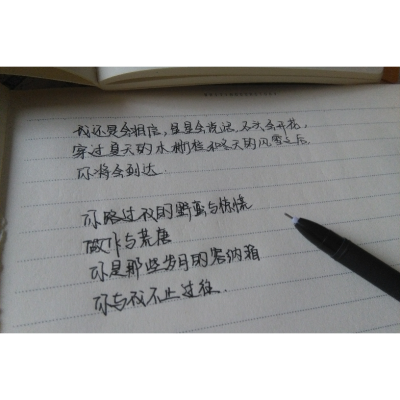 我还是会相信,星星会说话,石头会开花,
穿过夏天的木栅栏和冬天的风雪之后,
你将会到达.
你路过我的野蛮与彷徨
做作与荒唐
你是那些岁月的容纳箱
你与我不止过往.